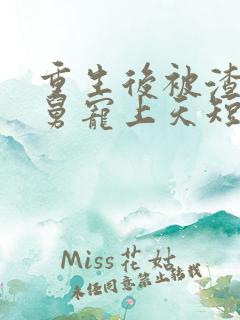 重生後被渣
舅寵上天短
Miss花姑
未经同意禁止转载